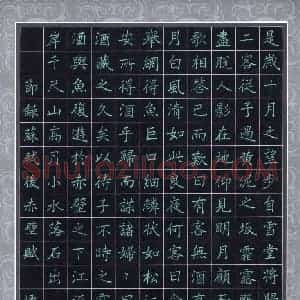 是歲十月之望步自雪堂將
二客從予過黃泥之坂霜露
盡脫人影在地仰見明月顧
歌相答已而歎曰有客無酒
月白風清如此良夜何客曰
舉網得魚巨口細鱗狀如松
安所得酒乎歸而謀諸婦婦
酒藏之久矣以待子不時之
酒與魚復遊於赤壁之下江
岸千尺山高月小水落石出
節錄蘇軾後赤壁賦